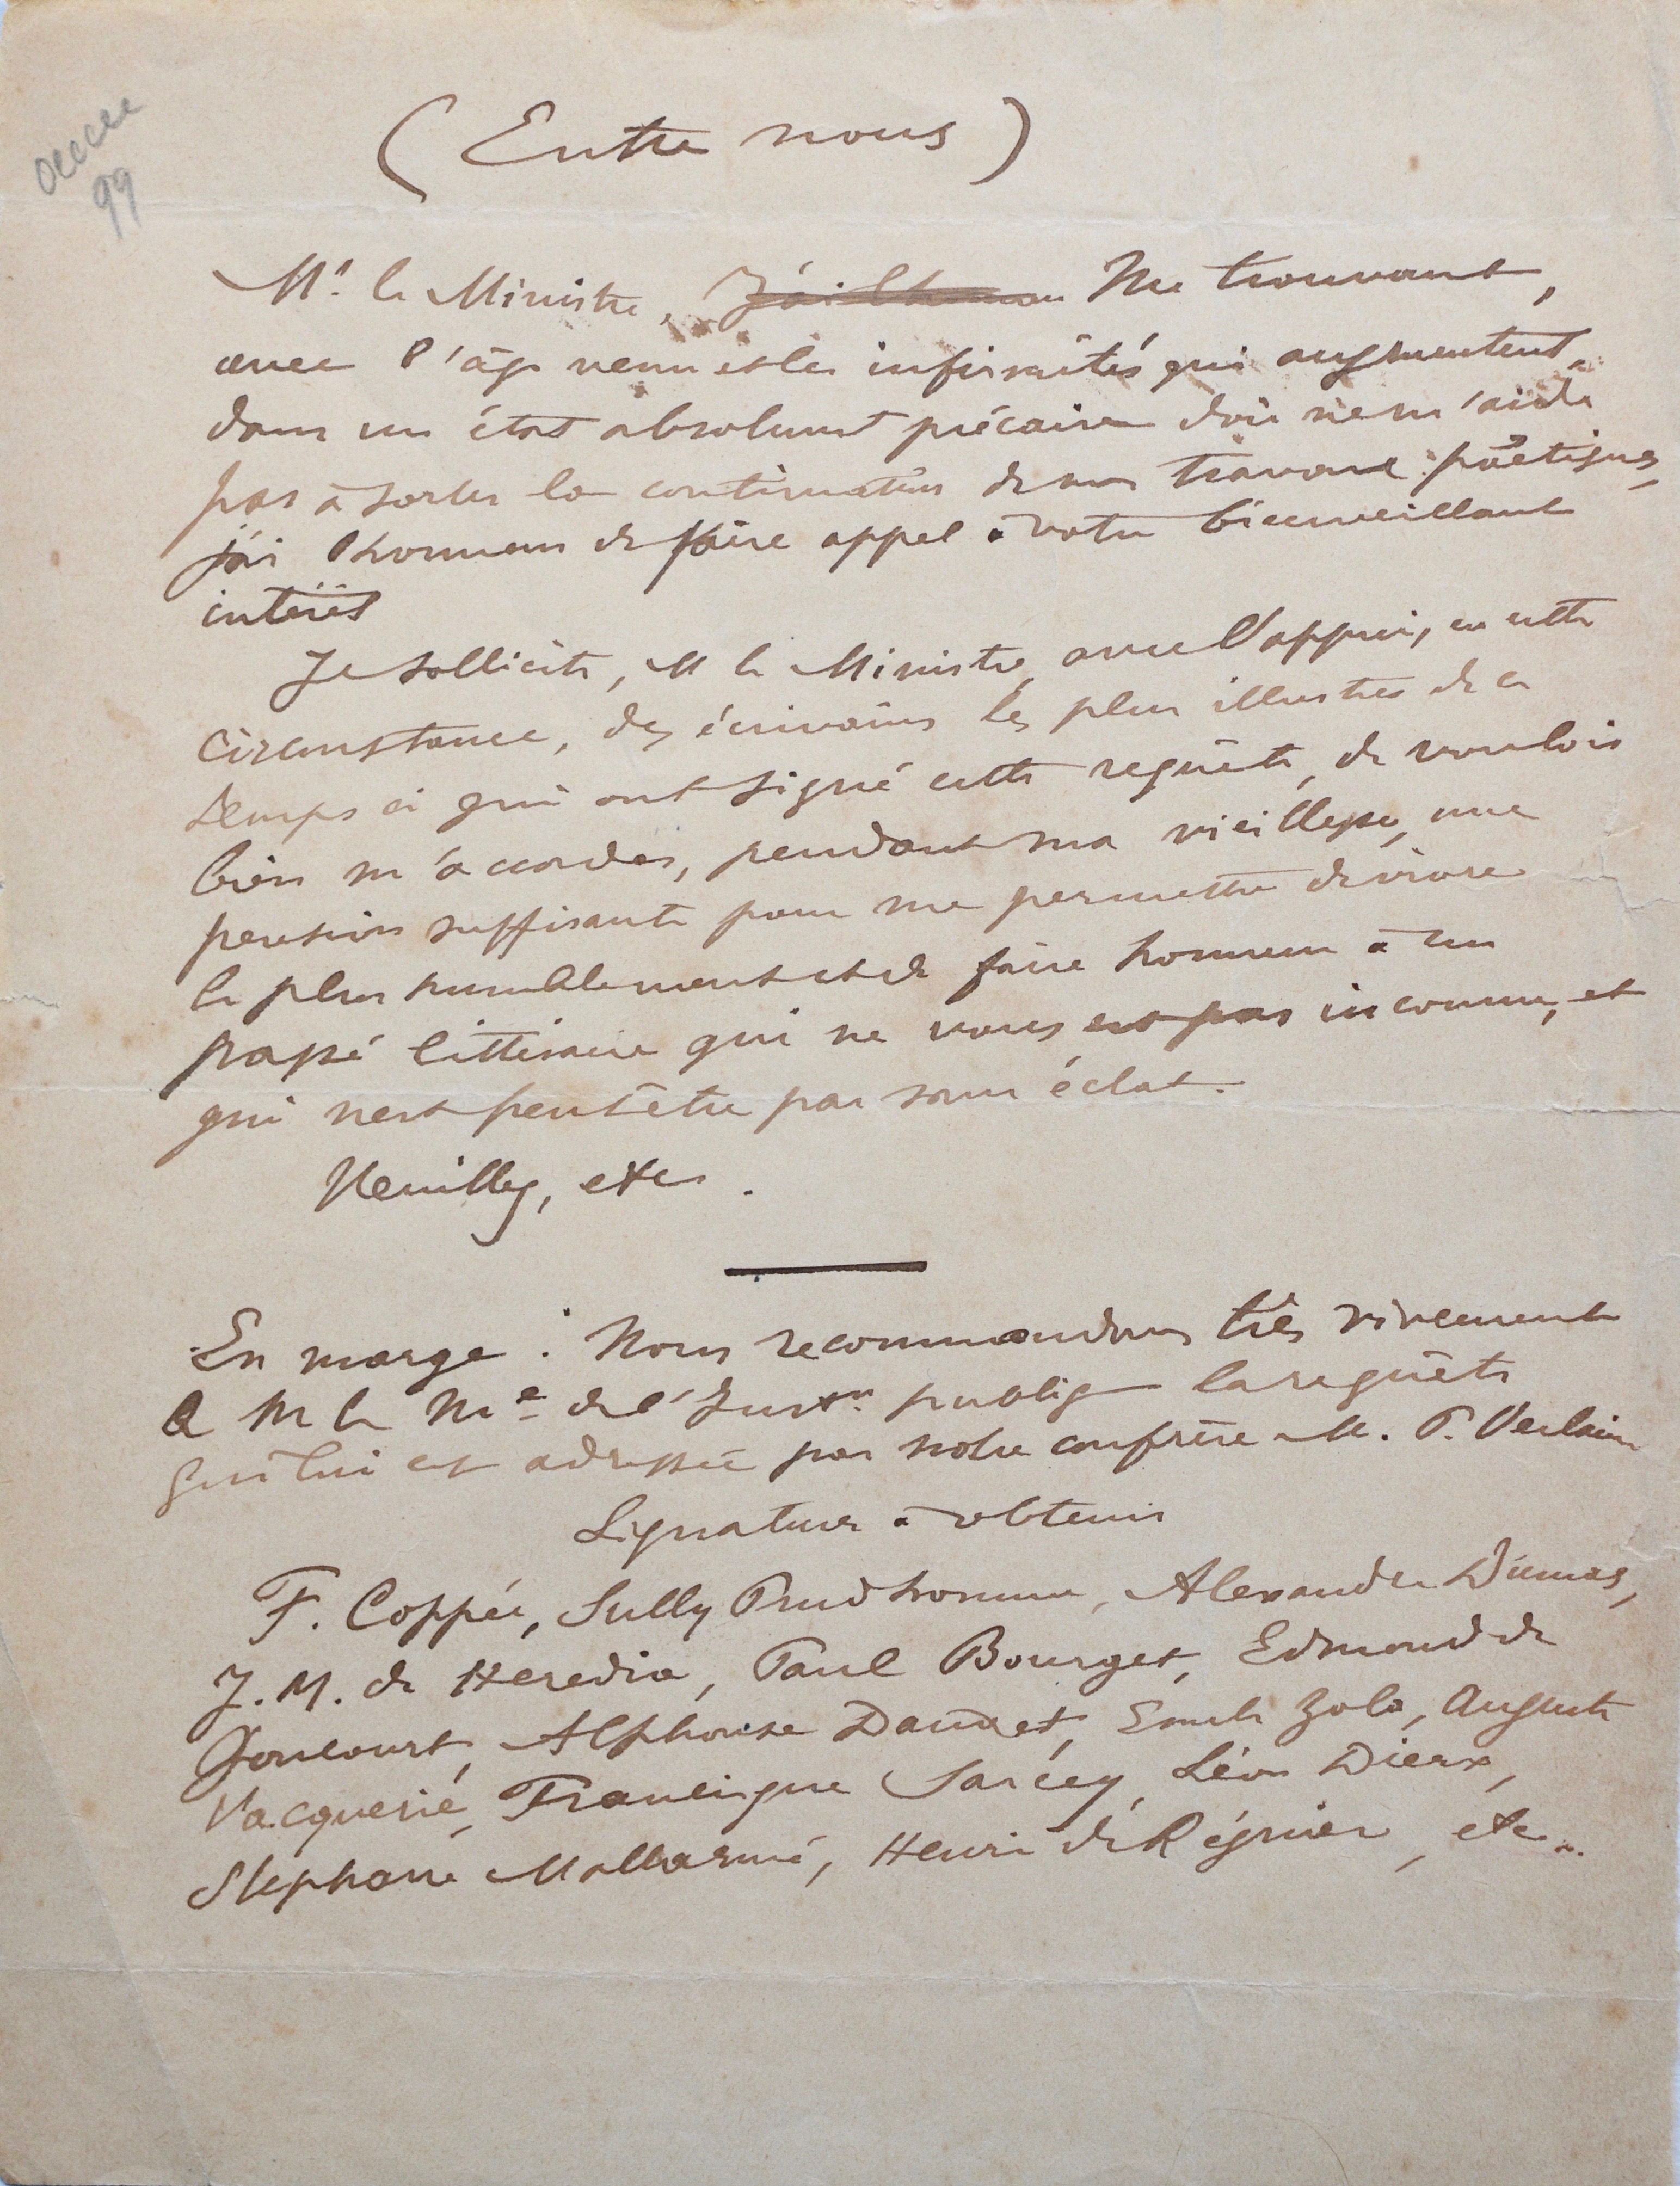 (Entre nous)
Mr. le Ministre, J'ai l'honneur Me trouvant,
avec l'âge venu et les infirmités qui augmentent,
dans un état absolument précaire d'où ne m'aide
pas à sortir la continuation de mes travaux poëtiques,
j'ai l'honneur de faire appel à votre bienveillant
intérêt
Je sollicite, M le Ministre, avec l'appui, en cette
circonstance, des écrivains les plus illustres de ce
temps ci qui ont signé cette requête, de vouloir
bien m'accorder, pendant ma vieillesse, une
pension suffisante pour me permettre de vivre
le plus humblement et de faire honneur à un
passé littéraire qui ne vous est pas inconnu, et
qui n'est peut être pas sans éclat.
Neuilly, etc.
En marge : Nous recommandons très vivement
à M le Me de l'Inston publique la requête
qui lui est adressée par notre confrère M. P. Verlaine
Signatures à obtenir
F. Coppée, Sully Prudhomme, Alexandre Dumas,
J. M. de Heredia, Paul Bourget, Edmond de
Goncourt, Alphonse Daudet, Emile Zola, Auguste
Vacquerie, Francisque Sarcey, Léon Dierx,
Stephane Mallarmé, Henri de Régnier, etc..
99